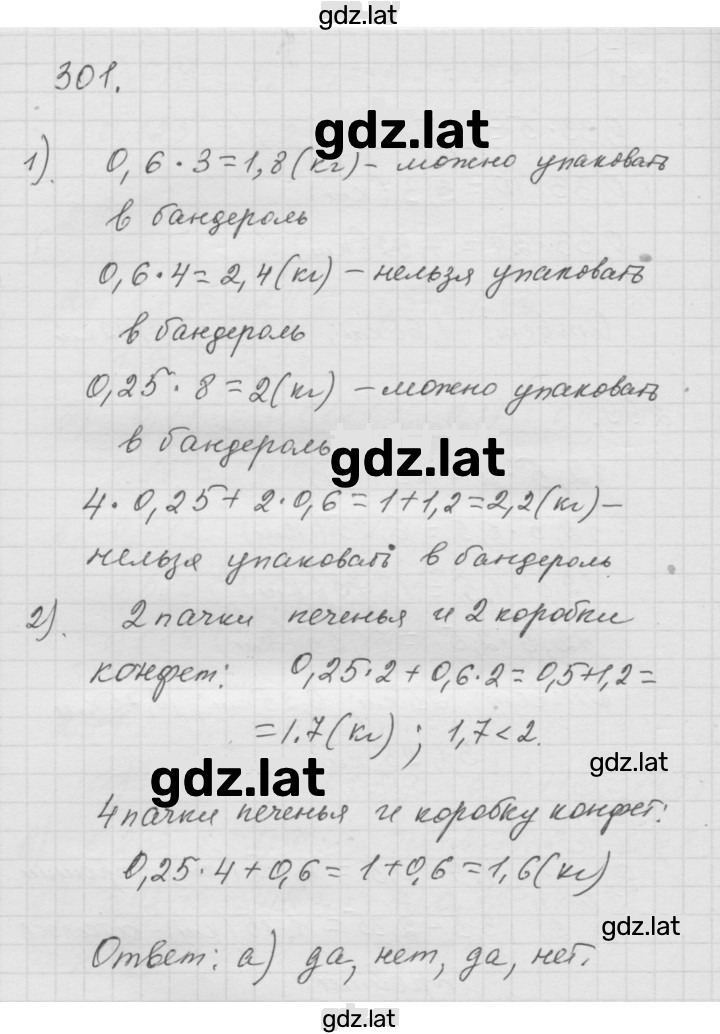 gdz.lat
301.
gdz.lat
1). 0,6 · 3 = 1,8 (кг) - можно упаковать
в бандероль
0,6 · 4 = 2,4 (кг) - нельзя упаковать
в бандероль
0,25 · 8 = 2 (кг) - можно упаковать
в бандероль
gdz.lat
4 · 0,25 + 2 · 0,6 = 1 + 1,2 = 2,2 (кг) -
нельзя упаковать в бандероль
2). 2 пачки печенья и 2 коробки
конфет: 0,25 · 2 + 0,6 · 2 = 0,5 + 1,2 =
= 1.7 (кг) ; 1,7 < 2.
gdz.lat
gdz.lat
4 пачки печенья и коробку конфет:
0,25 · 4 + 0,6 = 1 + 0,6 = 1,6 (кг)
gdz.lat
Ответ: а) да, нет, да, нет.
gdz.lat